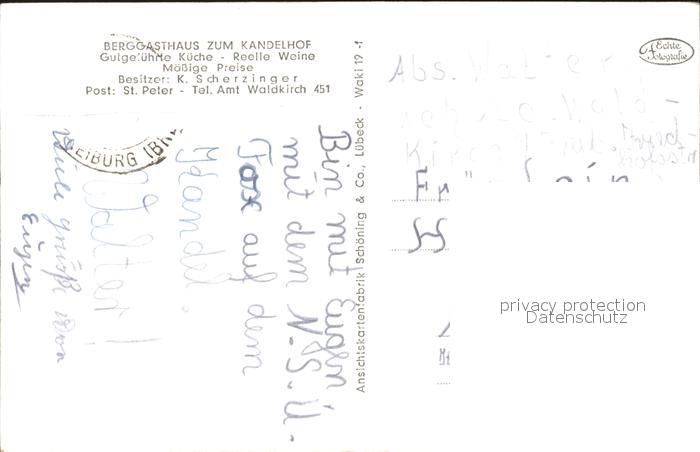 BERGGASTHAUS ZUM KANDELHOF
Gutgeführte Küche - Reelle Weine
Mäßige Preise
Besitzer: K. Scherzinger
Post: St. Peter - Tel. Amt Waldkirch 451
EIBURG (BR
Bin mit Eugen
mit dem N.S.U.
Fox auf dem
Kandel.
Walter!
Viele grüße von
Eugen
Ansichtskartenfabrik Schöning & Co., Lübeck - Waki 19 -f
Echte
Fotografie
Abs. Walter
Wald-
Kirch
privacy protection
Datenschutz